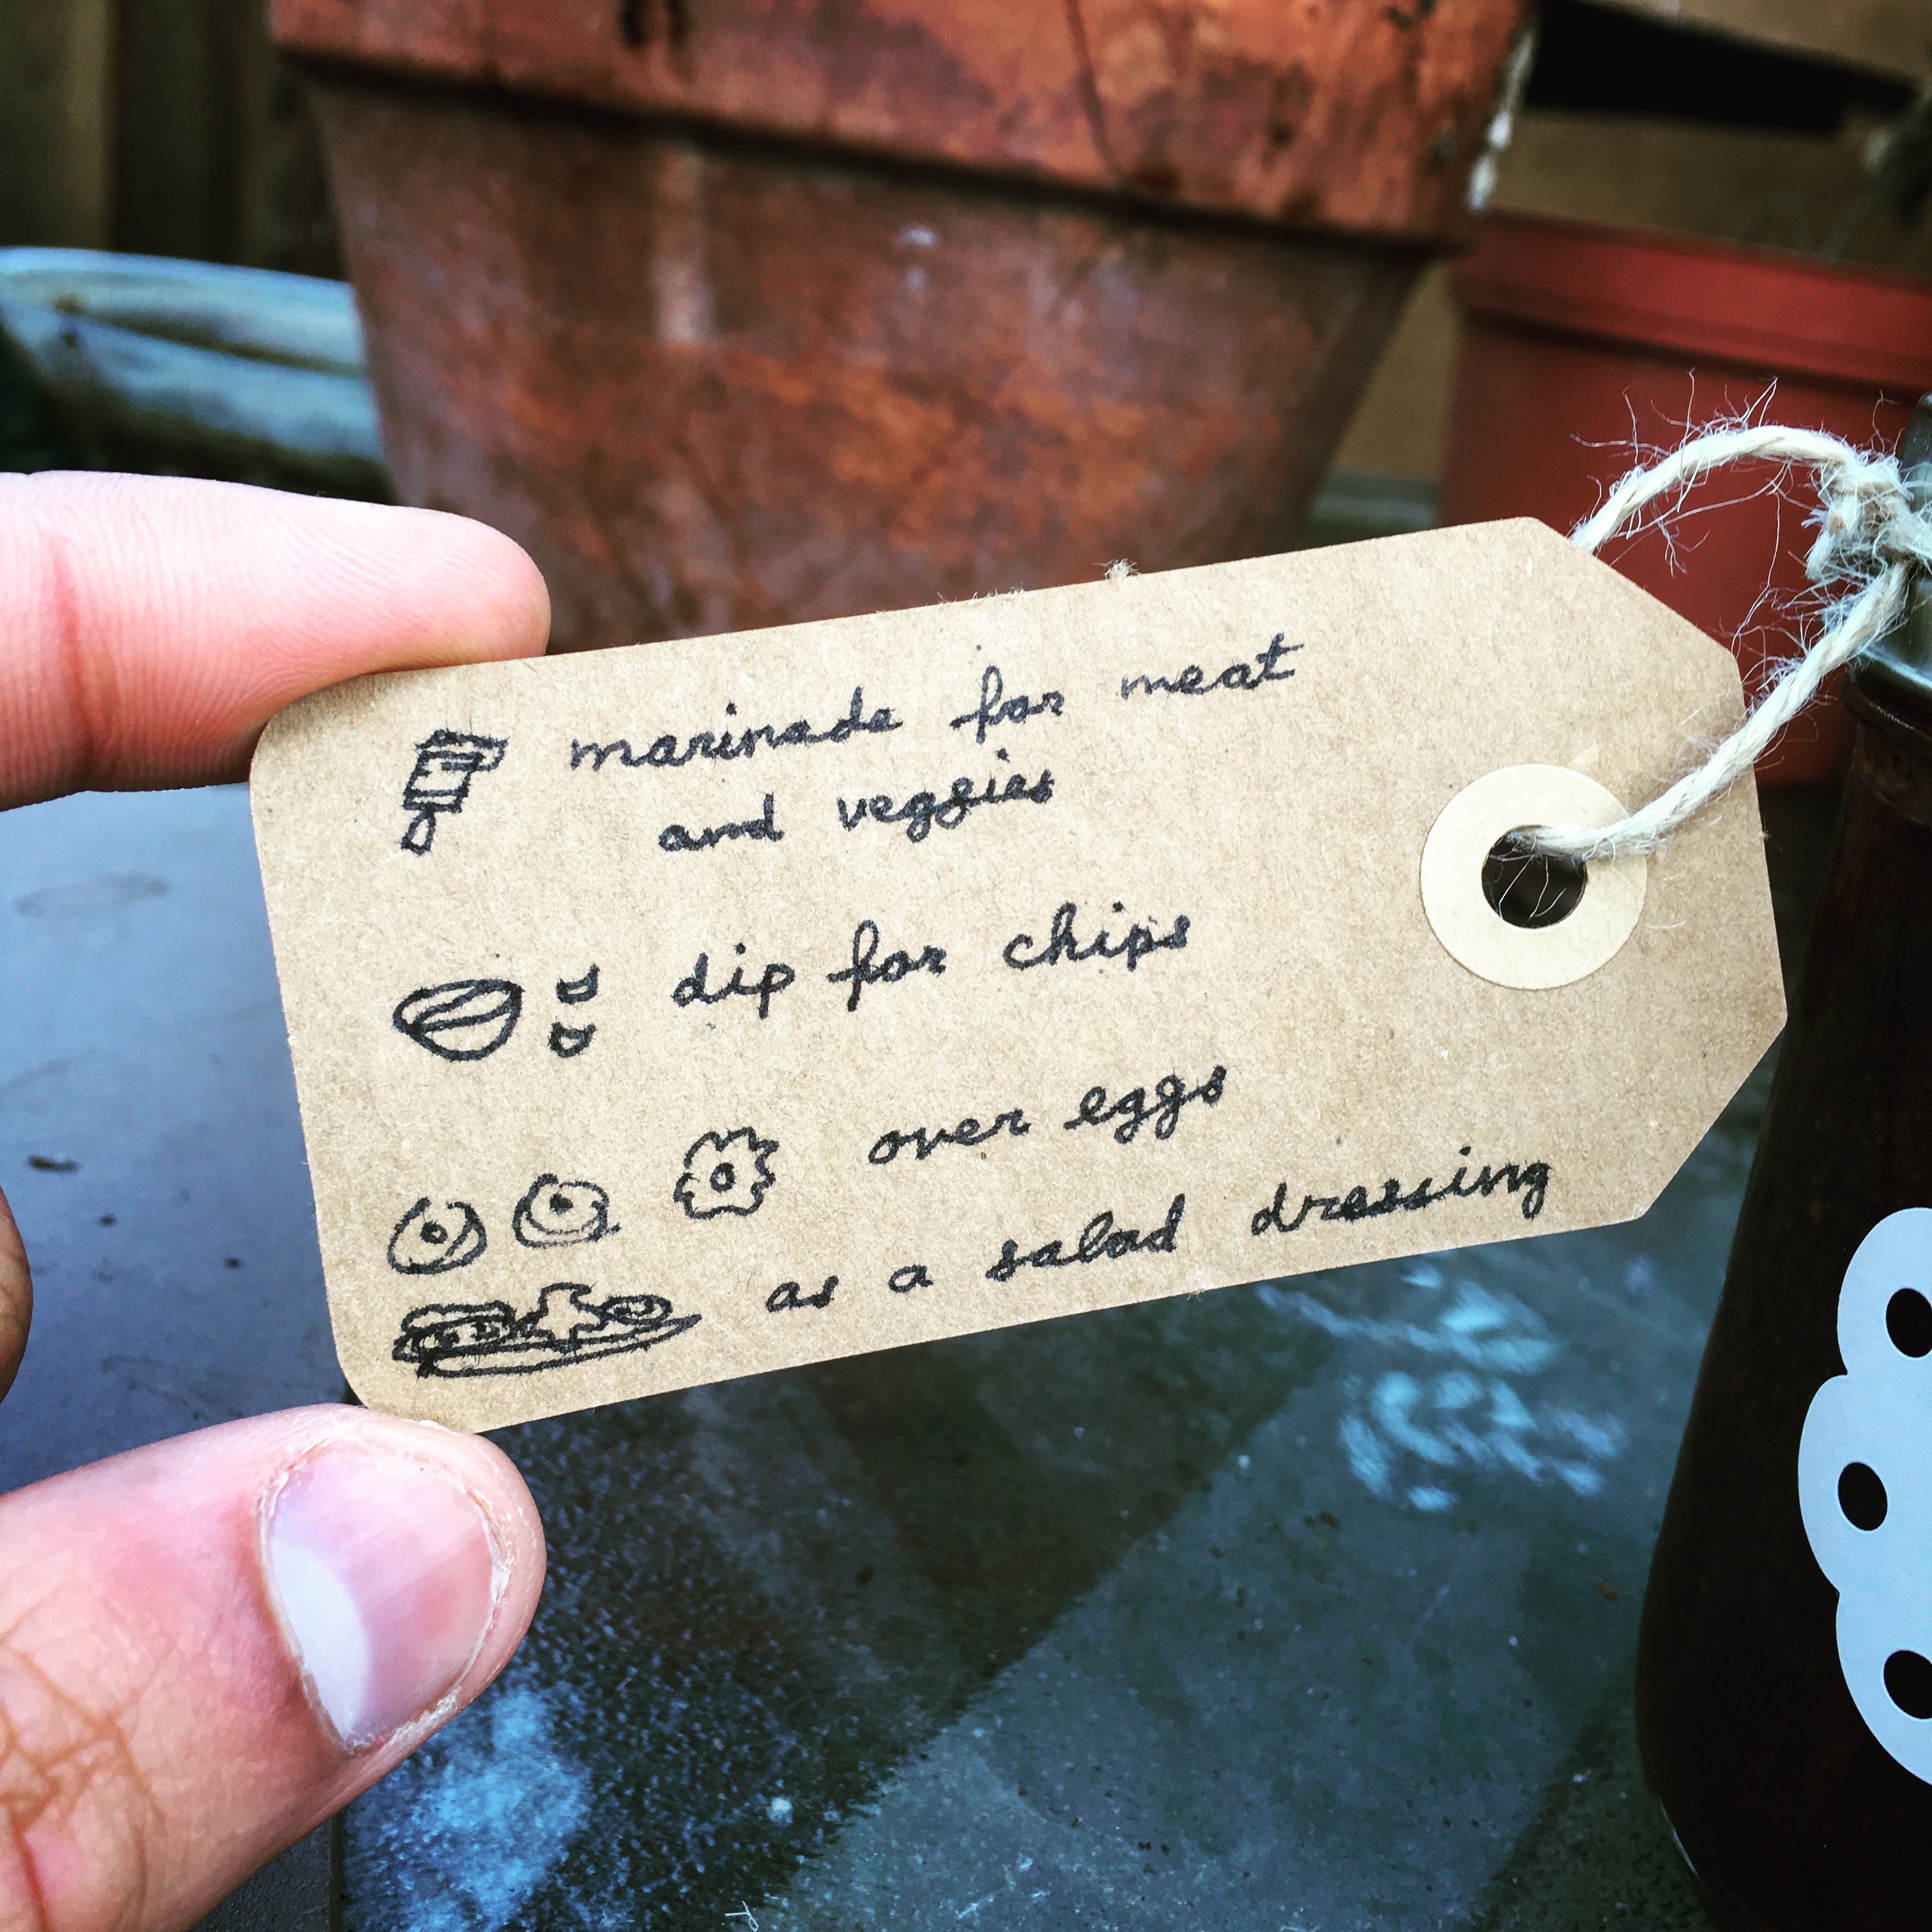 marinade for meat
and veggies
dip for chips
over eggs
as a salad dressing